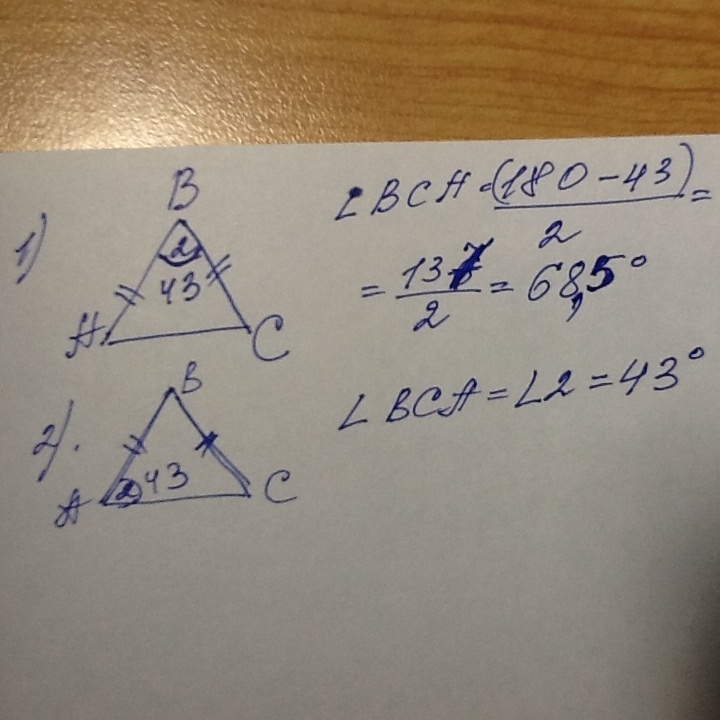 1)
B
2
43
A
C
∠BCA = (180-43)/2 =
= 137/2 = 68,5°
2).
B
2 43
A
C
∠BCA = ∠2 = 43°